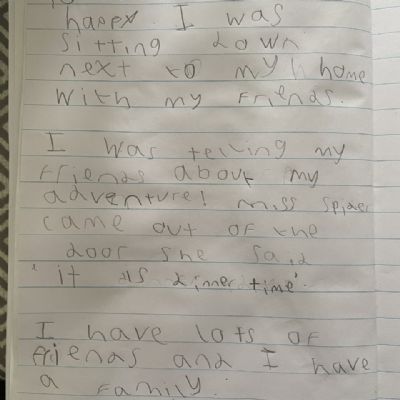 happy. I was
sitting down
next to my home
with my friends.
I was telling my
friends about my
adventure! miss spider
came out of the
door she said
'it is dinner time'.
I have lots of
friends and I have
a family.